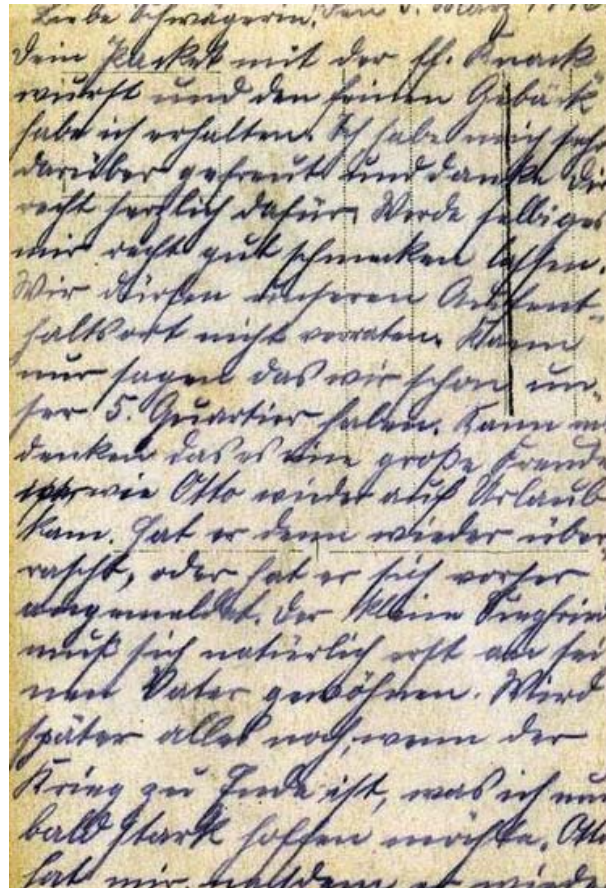 Liebe Schwägerin! Den 5. März
Dein Packet mit der ff. Knack
wurst und den feinen Gebäck
habe ich erhalten. Ich habe mich sehr
darüber gefreut und danke Dir
recht herzlich dafür. Werde selbiges
mir recht gut schmecken lassen.
Wir dürfen unseren Aufent-
haltsort nicht verraten. Kann
nur sagen das wir schon un-
ser 5. Quartier haben. Kann
denken das es eine große Freude
wie Otto wieder auf Urlaub
kam. Hat er denn wieder über-
rascht, oder hat er sich vorher
angemeldet. Der kleine Siegfried
muß sich natürlich erst an sei
nen Vater gewöhnen. Wird
später alles noch, wenn der
Krieg zu Ende ist, was ich nun
bald stark hoffen möchte. Otto
hat mir, nachdem er wieder